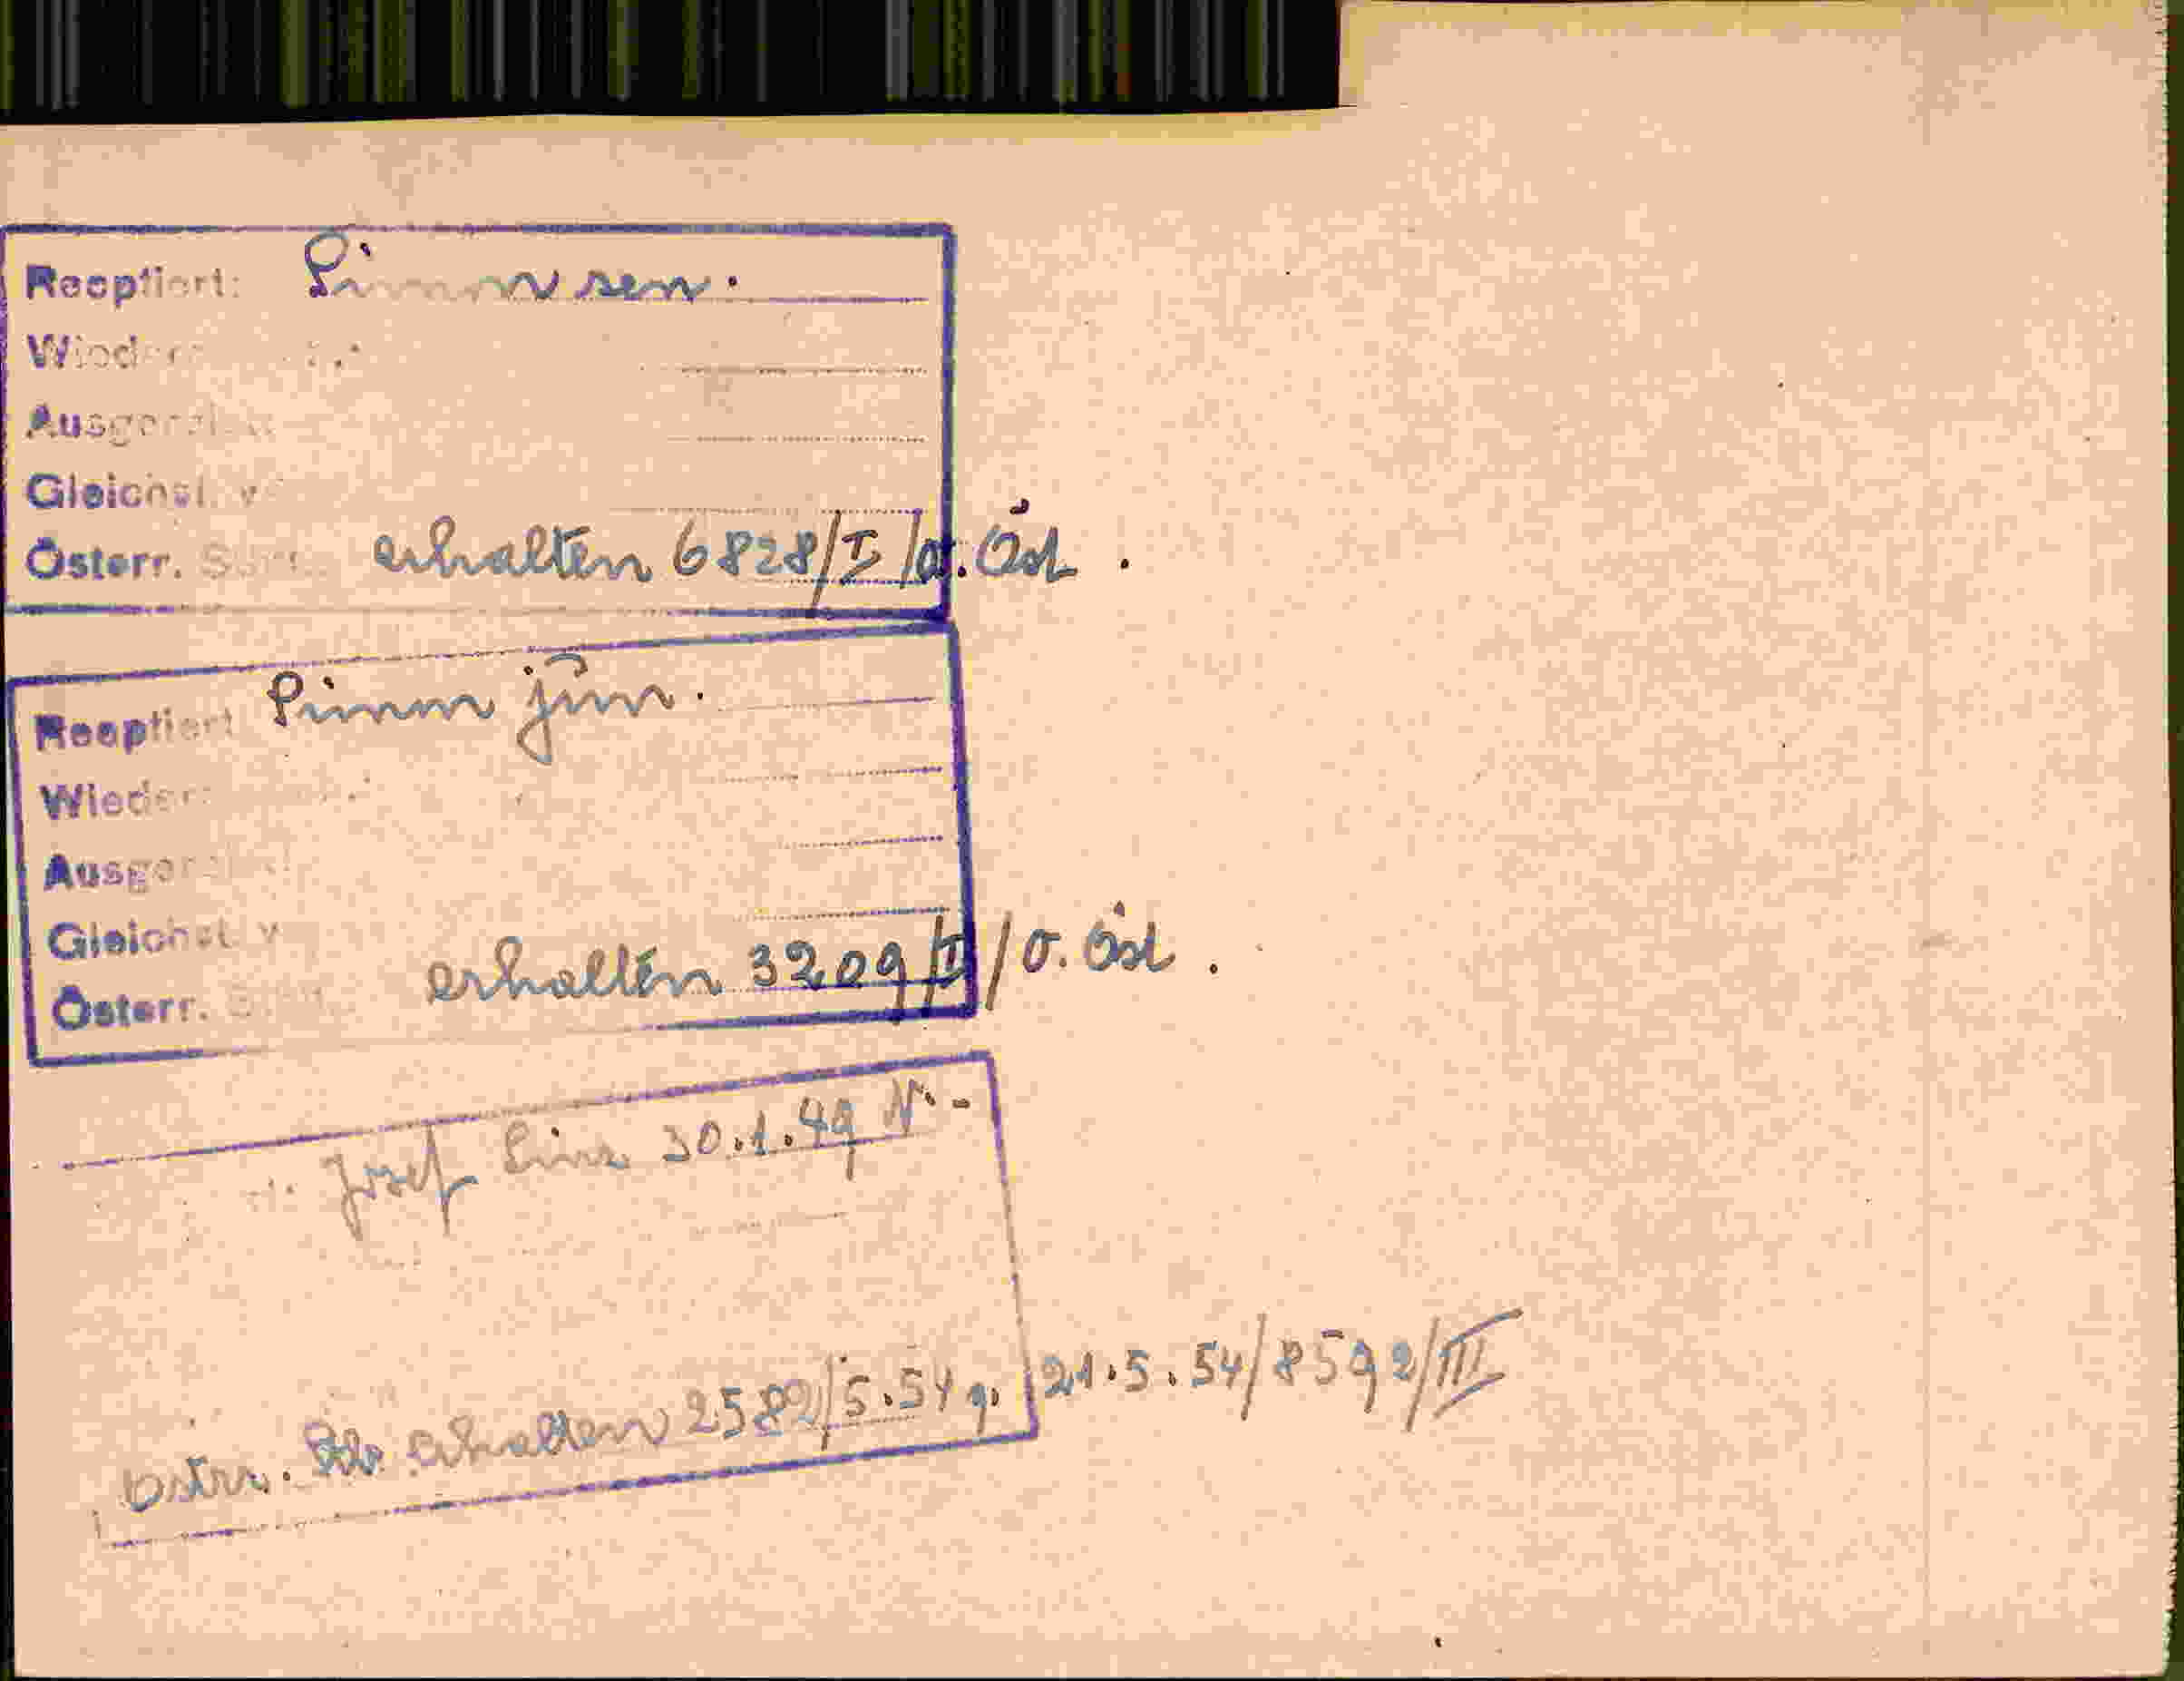 Reeptiert: Simm sen.
Wieder
Ausger
Gleichst. v
Österr. erhalten 6828/I/o. Öst.
Reeptiert Simm jun.
Wieder
Ausger
Gleichst. v
Österr. erhalten 3209/I/o. Öst.
Josef 30.1.49
östrr. Stb. erhalten 2582/5.54 g. 21.5.54/8592/III